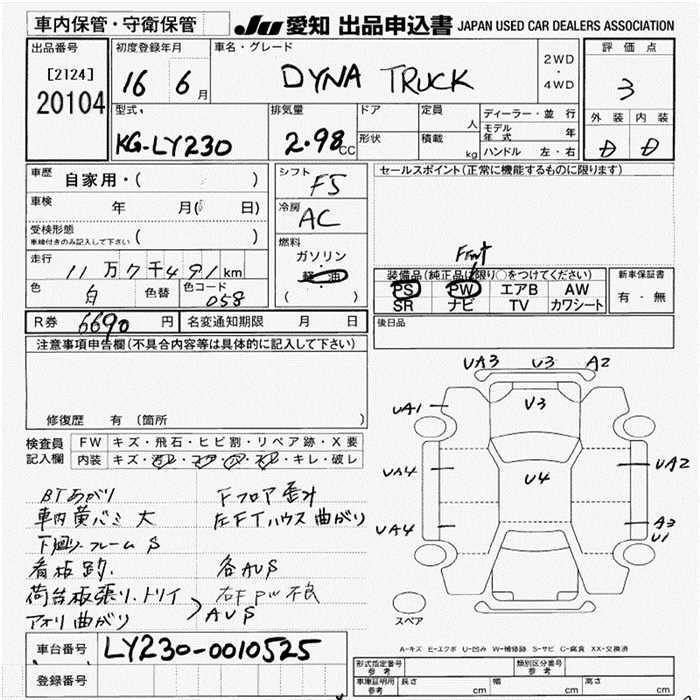 車内保管・守衛保管 JU 愛知 出品申込書 JAPAN USED CAR DEALERS ASSOCIATION
出品番号 初度登録年月 車名・グレード 評価点
[2124] 16 6月 DYNA TRUCK 2WD・4WD 3
20104
型式 排気量 ドア 定員 人 ディーラー・並行 外装 内装
KG-LY230 2.98cc 形状 積載 kg モデル年式 年 D D
ハンドル 左・右
車歴 自家用・( ) シフト F5 セールスポイント(正常に機能するものに限ります)
車検 年 月( 日) 冷房 AC
受検形態 ( )
車検付きのみ記入して下さい
燃料 Front
走行 11万7千491km ガソリン・軽油 ( ) 装備品(純正品に限り○をつけてください) 新車保証書
色 白 色替 色コード 058 PS PW エアB AW 有・無
SR ナビ TV カワシート
R券 6690円 名変通知期限 月 日 後日品
注意事項申告欄(不具合内容等は具体的に記入して下さい)
UA3 U3 A2
UA1 U3
修復歴 有 (箇所 )
検査員記入欄 FW キズ・飛石・ヒビ割・リペア跡・X要
内装 キズ・汚レ・コゲ・穴・スレ・キレ・破レ
UA4 U4 UA2
BTあがり Fフロア歪み
車内黄バミ大 左FTハウス曲がり
UA4 A3
U1
下廻り・フレームS
看板跡 各AUS
荷台板張り・トリイ 右FPW不良
アオリ曲がり AUS
スペア
車台番号 LY230-0010525
A=キズ E=エクボ U=凹み W=補修跡 S=サビ C=腐食 XX=交換済
登録番号
形式指定番号 参考 類別区分番号 参考
車庫証明用 参考 長さ cm 幅 cm 高さ cm